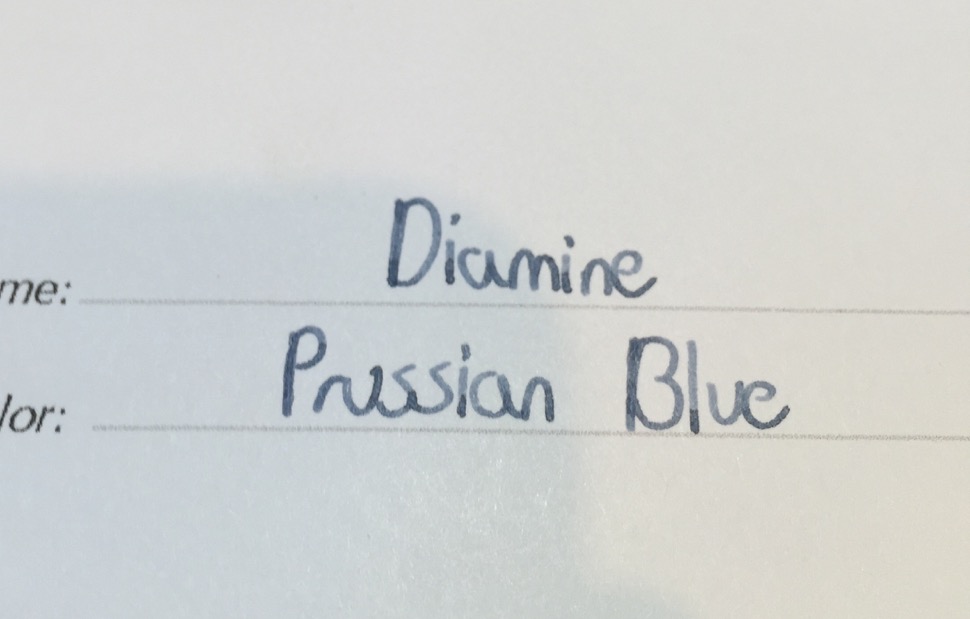 me: Diamine
lor: Prussian Blue